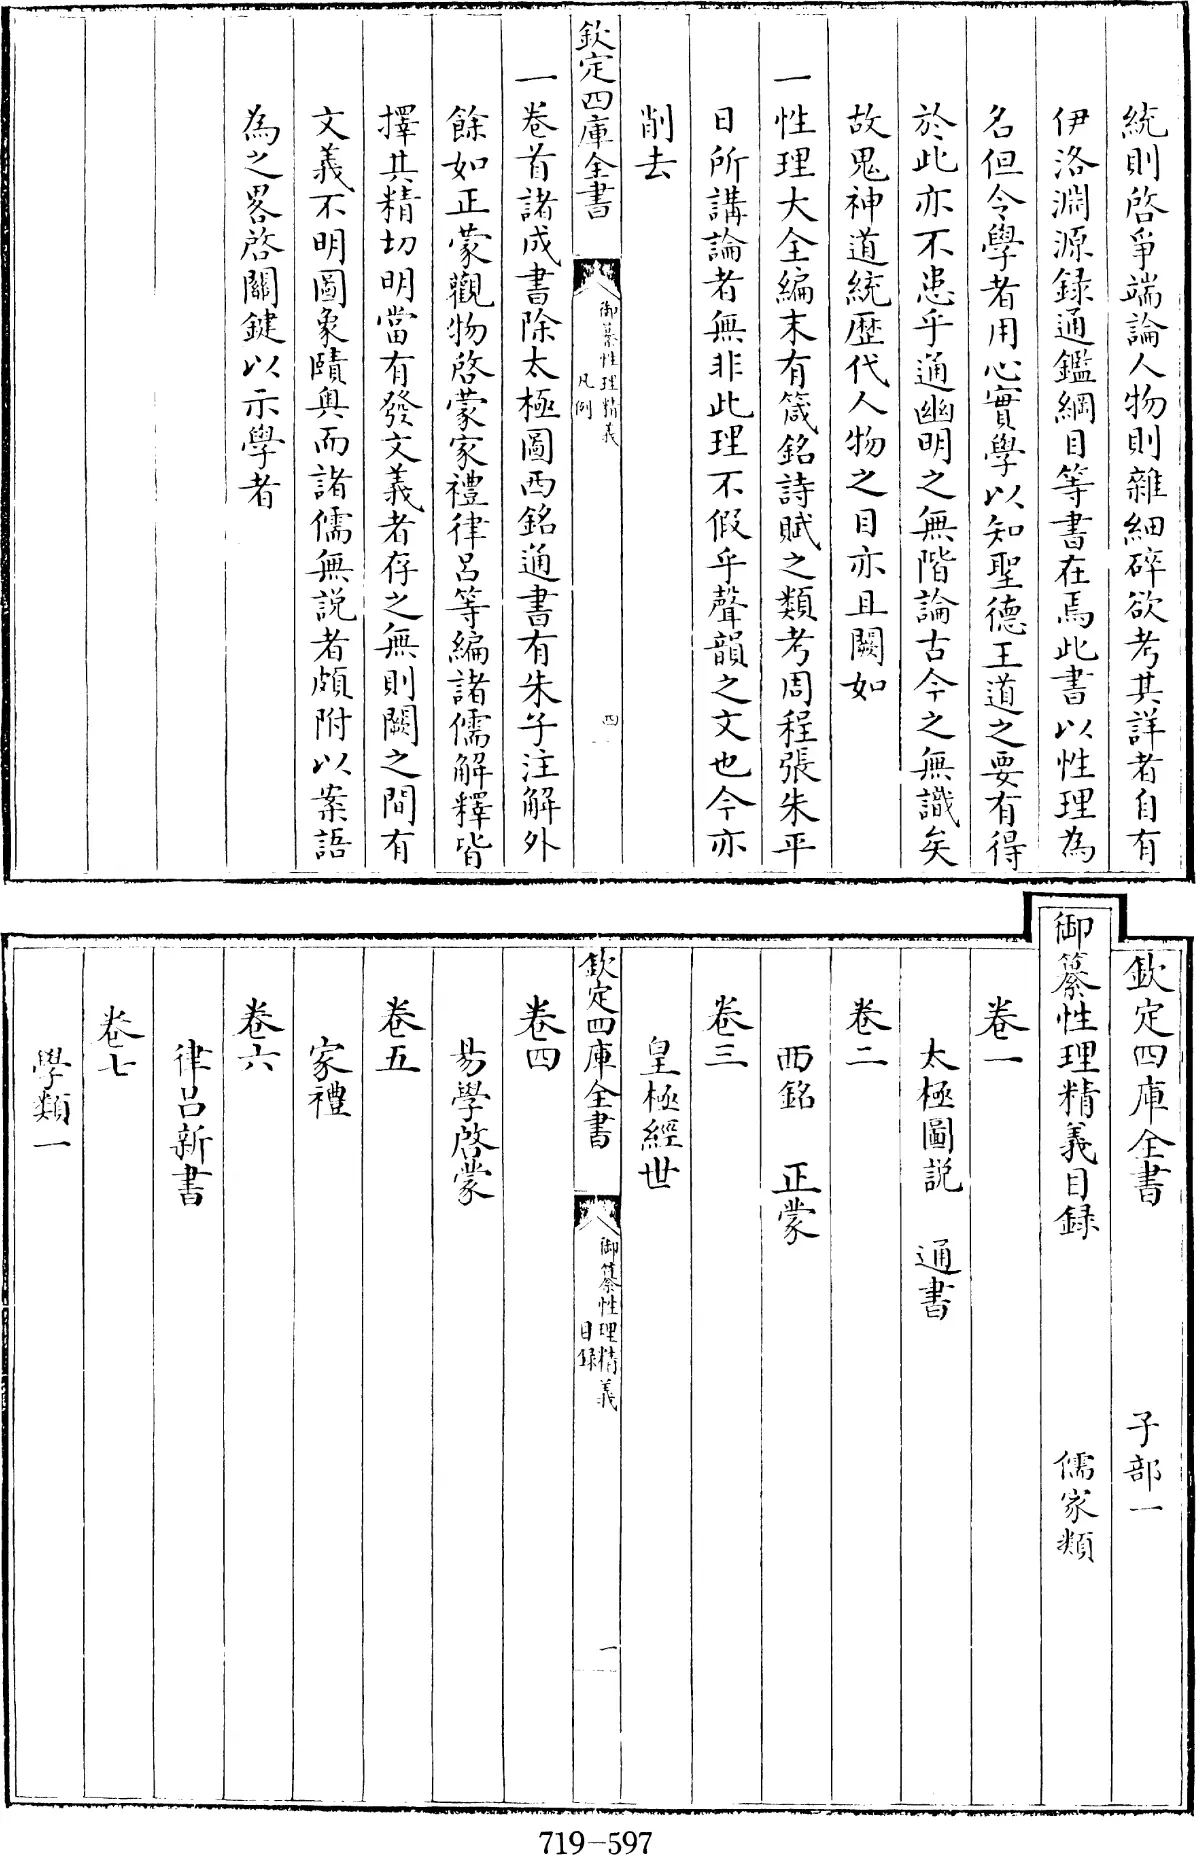 統則啓爭端論人物則雜細碎欲考其詳者自有
伊洛淵源録通鑑綱目等書在焉此書以性理為
名但令學者用心實學以知聖德王道之要有得
於此亦不患乎通幽明之無階論古今之無識矣
故鬼神道統歷代人物之目亦且闕如
一性理大全編末有箴銘詩賦之類考周程張朱平
日所講論者無非此理不假乎聲韻之文也今亦
削去
欽定四庫全書
御纂性理精義
凡例
四
一卷首諸成書除太極圖西銘通書有朱子注解外
餘如正蒙觀物啓蒙家禮律呂等編諸儒解釋皆
擇其精切明當有發文義者存之無則闕之間有
文義不明圖象賾奥而諸儒無説者頗附以案語
為之畧啓關鍵以示學者
欽定四庫全書 子部一
御纂性理精義目録 儒家類
卷一
太極圖説 通書
卷二
西銘 正蒙
卷三
皇極經世
欽定四庫全書
御纂性理精義
目録
一
卷四
易學啓蒙
卷五
家禮
卷六
律呂新書
卷七
學類一
719-597